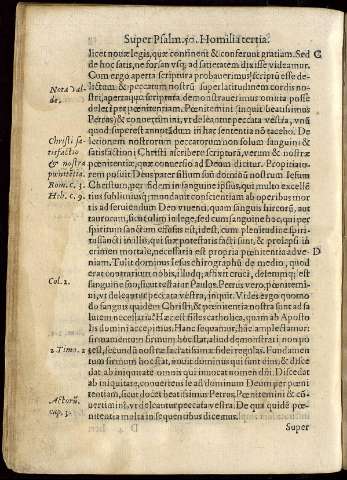 Super Psalm. 50. Homilia tertia.
licet nouæ legis, quæ continent & conferunt gratiam. Sed C
de hoc satis, ne forsan vsq; ad satietatem dixisse videamur.
Com ergo aperta scriptura probauerimus, scriptū esse de-
Nota Val- lictum & peccatum nostrū super latitudinem cordis no-
de. stri, apertaq; scriptura demonstrauerimus omnia posse
deleri per pœnitentiam. Pœnitemini (inquit beatissimus
Petrus) & conuertimini, vt deleantur peccata vestra, vnū
quod superest annotādum in hac sententia nō tacebo. De
Christi sa- lectionem nostrorum peccatorum non solum sanguini &
tisfactio satisfactioni Christi ascribere scripturā, verum & nostræ
& nostra pœnitentiæ, quæ conuersio ad Deum dicitur. Propitiato-
pœnitētia. rem posuit Deus pater filium suū dominū nostrum Iesum
Rom. c. 3. Christum, per fidem in sanguine ipsius, qui multo excellē
Heb. c. 9. tius sublimiusq; mundauit conscientiam ab operibus mor
tis ad seruiendum Deo viuenti, quam sanguis hircorū, aut
taurorum, sicut olim in lege, sed cum sanguine hoc, qui per
spiritum sanctum effusus est, id est, cum plenitudine spiri-
tussancti in illis, qui suæ potestatis facti sunt, & prolapsi in
crimen mortale, necessaria est propria pœnitentia adue- D
niam. Tulit dominus Iesus chirographū de medio, quod
erat contrarium nobis, illudq; affixit cruci, delempq; est
Col. 2. sanguine suo, sicut testatur Paulus. Petrus vero, pœnitemi-
ni, vt deleantur peccata vestra, inquit. Vides ergo quomo
do sanguis quidem Christi, & pœnitentia nostra sunt ad sa
lutem necessaria? Hæc est fides catholica, quam ab Aposto
lis domini accepimus. Hanc sequamur, hūc amplectamur.
firmamentum firmum, hoc stat, aliud demonstrari non po
2 Timo. 2 test, secundū nostræ sacratissimæ fidei regulas. Fundamen
tum firmum hoc stat, nouit dominus qui sunt eius, & disce
dat ab iniquitate omnis qui inuocat nomen dn̄i. Discedat
ab iniquitate, conuertens se ad dominum Deum per pœni
tentiam, sicut docet beatissimus Petrus, Pœnitemini & cō-
Actorū. uertimini, vt deleantur peccata vestra. De qua quidē pœ-
cap. 3. nitentia multa in sequentibus dicemus.
Super